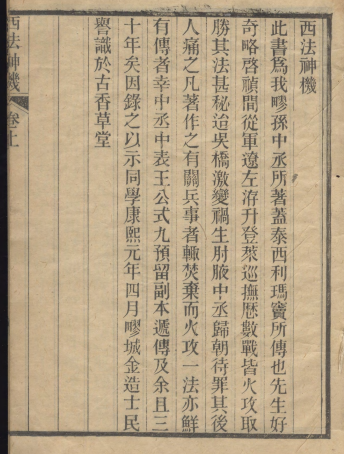 西法神機
此書爲我㽜孫中丞所著蓋泰西利瑪竇所傳也先生好
奇略啓禎間從軍遼左洊升登萊巡撫歷數戰皆火攻取
勝其法甚秘迨吳橋激變禍生肘腋中丞歸朝待罪其後
人痛之凡著作之有關兵事者輙焚棄而火攻一法亦鮮
有傳者幸中丞中表王公式九預留副本遞傳及余且三
十年矣因錄之以示同學康熙元年四月㽜城金造士民
譽識於古香草堂
西法神機 卷上